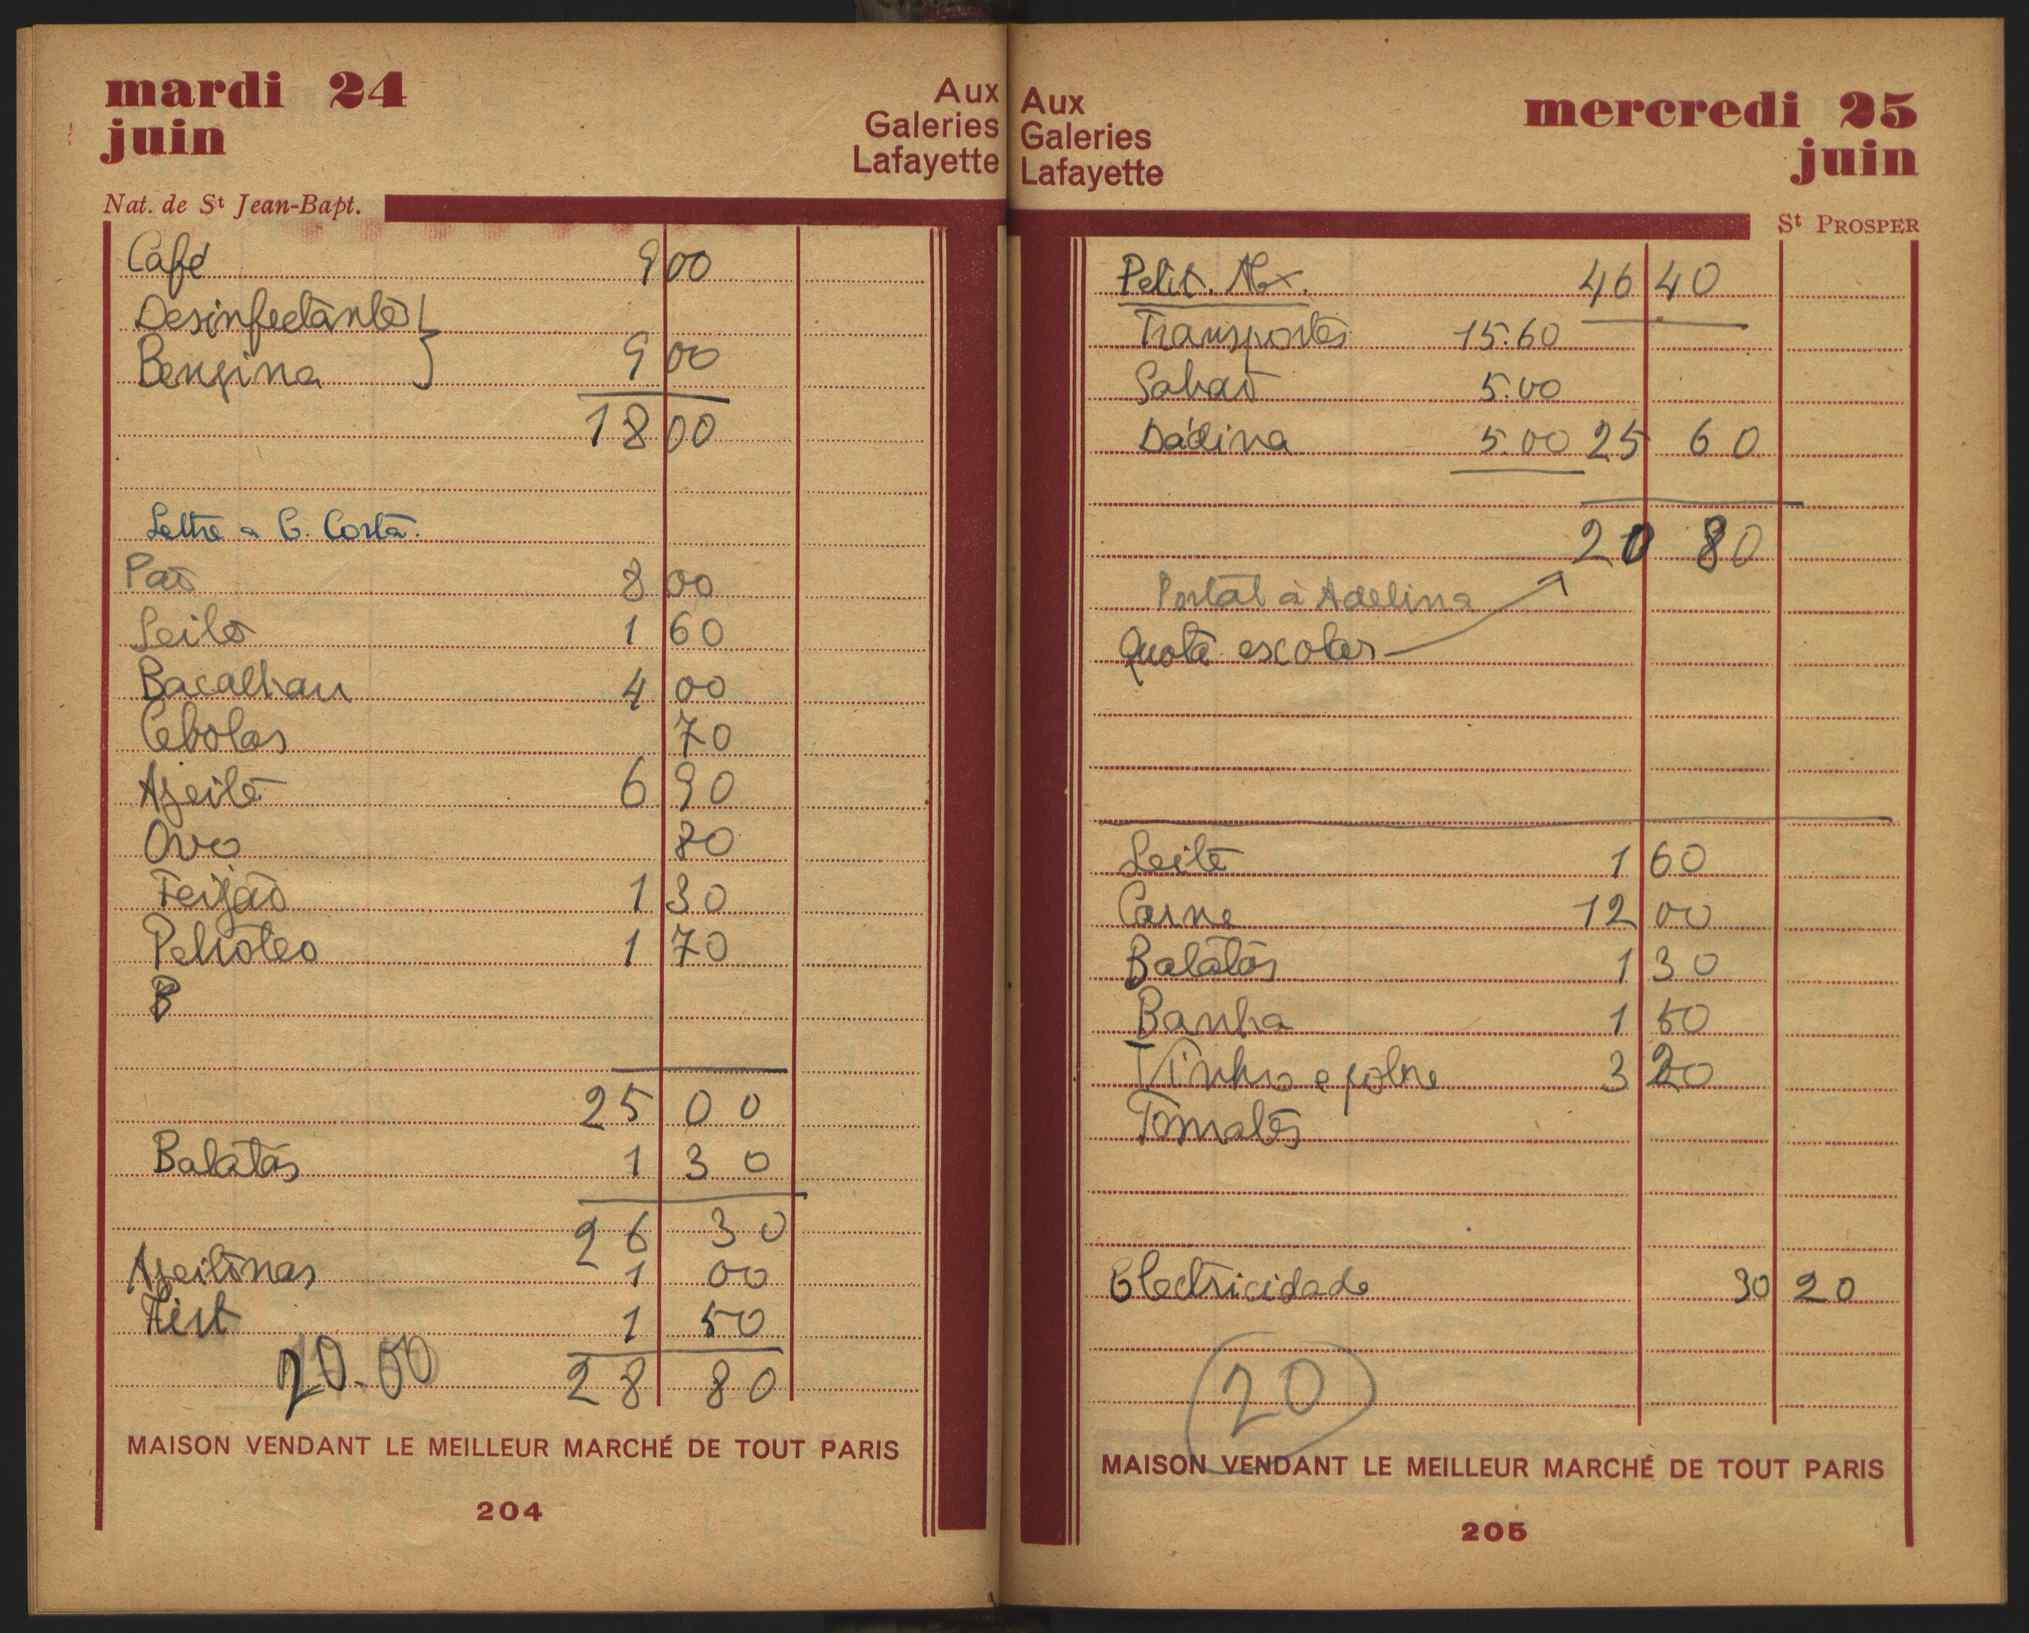 mardi 24
juin
Aux
Galeries
Lafayette
Nat. de St Jean-Bapt.
Café 9 00
Desinfectante
Benzina 9 00
18 00
Lettre a G. Costa.
Pão 8 00
Leite 1 60
Bacalhau 4 00
Cebolas 70
Azeite 6 90
Ovo 80
Feijão 1 30
Petroleo 1 70
B
25 00
Batatas 1 30
26 30
Azeitonas 1 00
1 50
20.00
28 80
MAISON VENDANT LE MEILLEUR MARCHÉ DE TOUT PARIS
204
Aux
Galeries
Lafayette
mercredi 25
juin
St PROSPER
Petit. 46 40
Transportes 15.60
Sabão 5.00
Dádiva 5.00 25 60
20 80
Postal à Adelina
Quota escolar
Leite 1 60
Carne 12 00
Batatas 1 30
Banha 1 50
Vinho e 3 20
Tomates
Electricidade 30 20
20
MAISON VENDANT LE MEILLEUR MARCHÉ DE TOUT PARIS
205